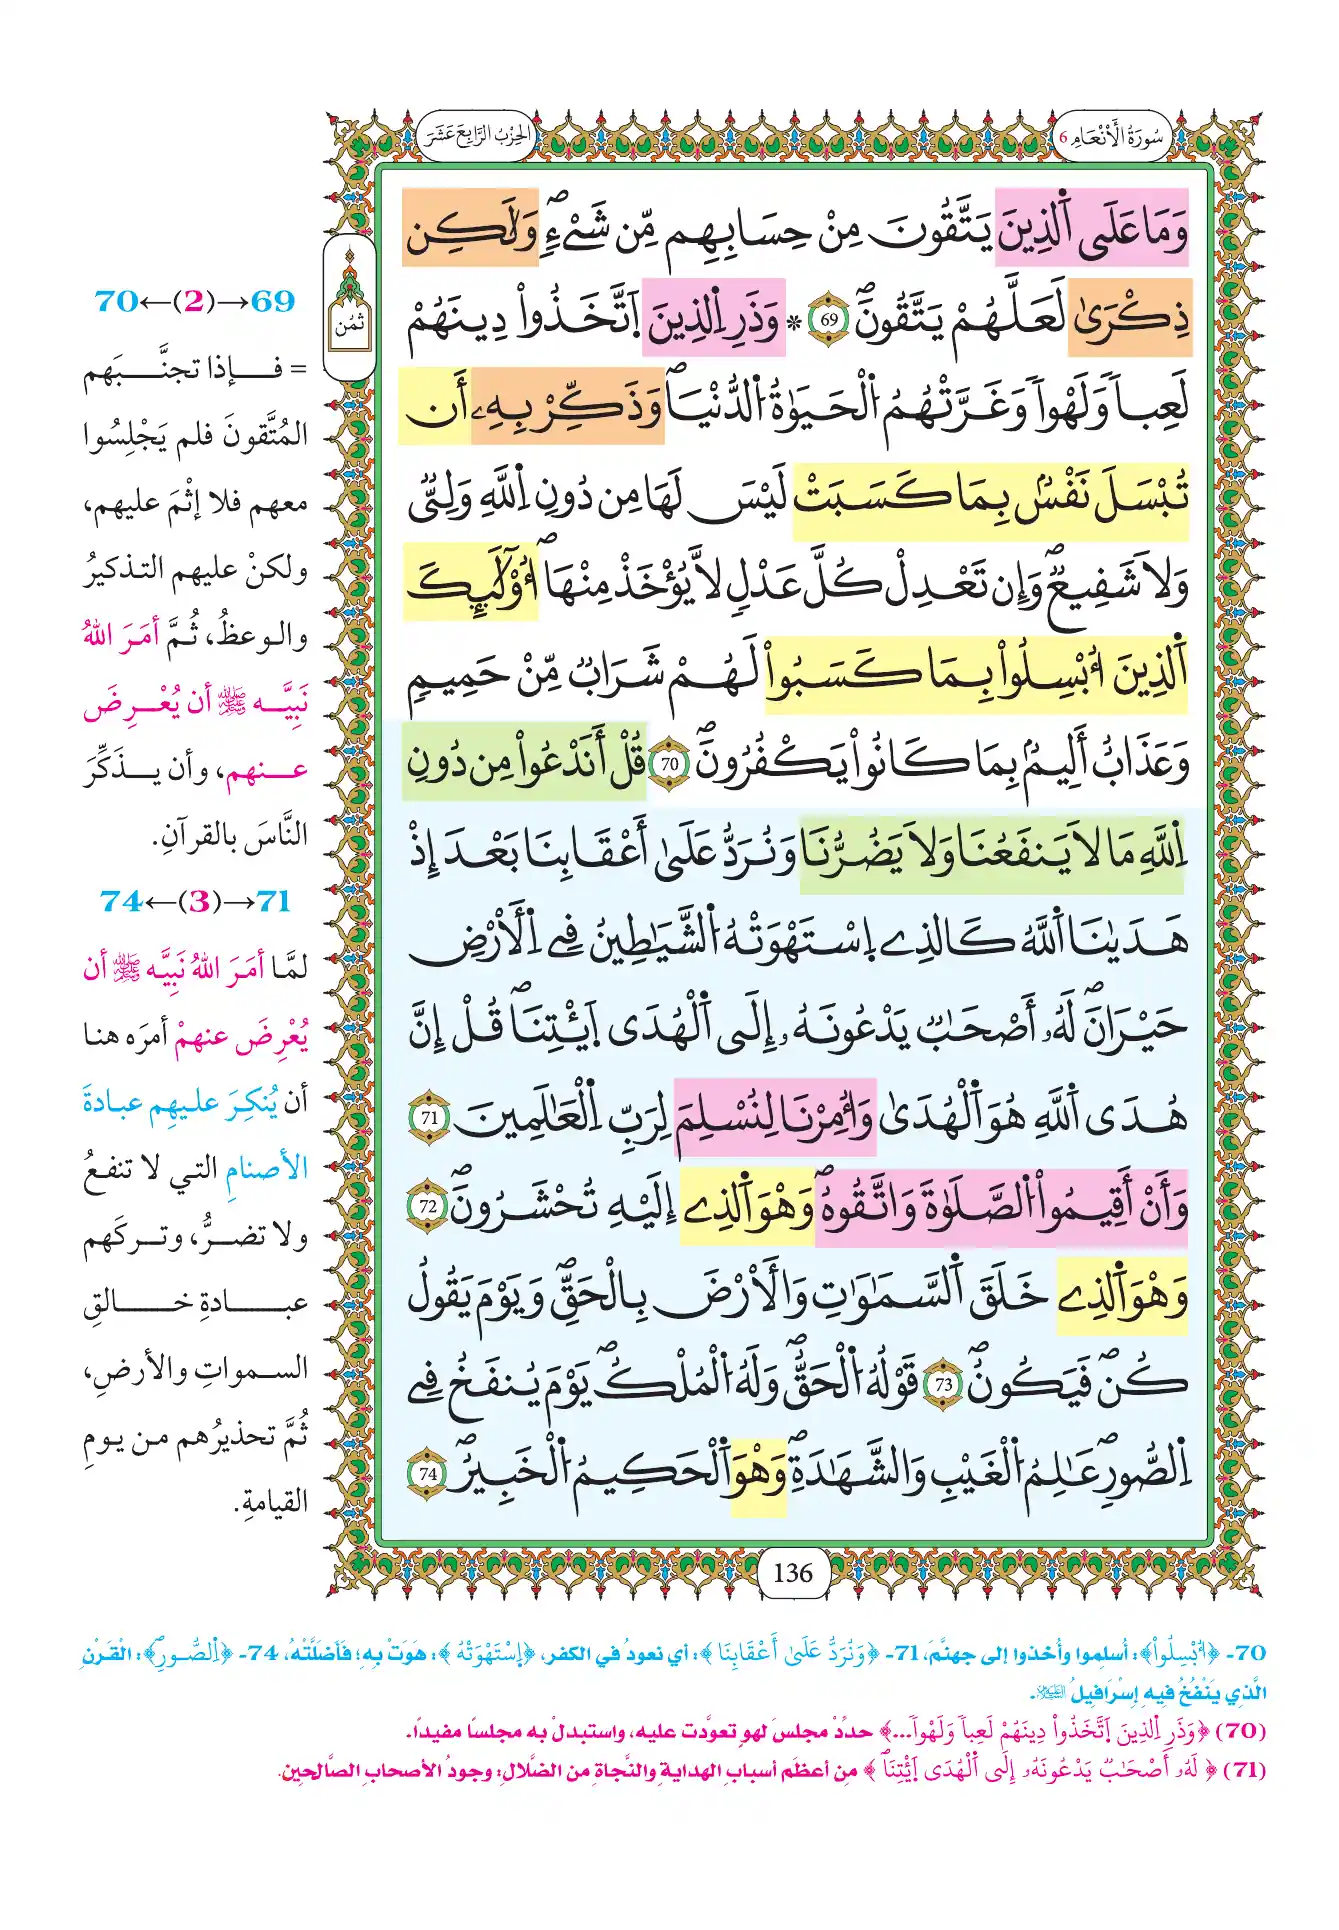 سُورَةُ الْأَنْعَامِ 6
الحِزْبُ الرَّابِعَ عَشَرَ
وَمَا عَلَى اَ۬لذِينَ يَتَّقُونَ مِنْ حِسَابِهِم مِّن شَيْءٖۖ وَلَٰكِن
ذِكْر۪ىٰ لَعَلَّهُمْ يَتَّقُونَۖ 69 * وَذَرِ اِ۬لذِينَ اَ۪تَّخَذُواْ دِينَهُمْ
لَعِباٗ وَلَهْواٗ وَغَرَّتْهُمُ اُ۬لْحَيَوٰةُ اُ۬لدُّنْي۪اۖ وَذَكِّرْ بِهِۦٓ أَن
تُبْسَلَ نَفْسُۢ بِمَا كَسَبَتْ لَيْسَ لَهَا مِن دُونِ اِ۬للَّهِ وَلِيّٞ
وَلَا شَفِيعٞۖ وَإِن تَعْدِلْ كُلَّ عَدْلٖ لَّا يُؤْخَذْ مِنْهَاۖ أُوْلَٰٓئِكَ
اَ۬لذِينَ أُبْسِلُواْ بِمَا كَسَبُواْ لَهُمْ شَرَابٞ مِّنْ حَمِيمٖ
وَعَذَابٌ أَلِيمُۢ بِمَا كَانُواْ يَكْفُرُونَۖ 70 قُلْ أَنَدْعُواْ مِن دُونِ
اِ۬للَّهِ مَا لَا يَنفَعُنَا وَلَا يَضُرُّنَا وَنُرَدُّ عَلَىٰٓ أَعْقَابِنَا بَعْدَ إِذْ
هَد۪يٰنَا اَ۬للَّهُ كَالذِے اِ۪سْتَهْوَتْهُ اُ۬لشَّيَٰطِينُ فِے اِ۬لْأَرْضِ
حَيْرَانَۖ لَهُۥٓ أَصْحَٰبٞ يَدْعُونَهُۥٓ إِلَى اَ۬لْهُدَى اَ۪ئْتِنَاۖ قُلْ إِنَّ
هُدَى اَ۬للَّهِ هُوَ اَ۬لْهُد۪ىٰ وَأُمِرْنَا لِنُسْلِمَ لِرَبِّ اِ۬لْعَٰلَمِينَ 71
وَأَنْ أَقِيمُواْ اُ۬لصَّلَوٰةَ وَاتَّقُوهُۖ وَهْوَ اَ۬لذِےٓ إِلَيْهِ تُحْشَرُونَۖ 72
وَهْوَ اَ۬لذِے خَلَقَ اَ۬لسَّمَٰوَٰتِ وَالْأَرْضَ بِالْحَقِّۖ وَيَوْمَ يَقُولُ
كُنۖ فَيَكُونُۖ 73 قَوْلُهُ اُ۬لْحَقُّۖ وَلَهُ اُ۬لْمُلْكُۖ يَوْمَ يُنفَخُ فِے
اِ۬لصُّورِۖ عَٰلِمُ اُ۬لْغَيْبِ وَالشَّهَٰدَةِۖ وَهْوَ اَ۬لْحَكِيمُ اُ۬لْخَبِيرُۖ 74
136
ثُمُن
69→(2)←70
= فـإذا تجنَّبَهم
المُتَّقونَ فلم يَجْلِسُوا
معهم فلا إثْمَ عليهم،
ولكنْ عليهم التذكيرُ
والوعظُ، ثُمَّ أمَرَ اللهُ
نَبِيَّه ﷺ أن يُعْرِضَ
عنهم، وأن يذَكِّرَ
النَّاسَ بالقرآنِ.
71→(3)←74
لمَّا أمَرَ اللهُ نَبِيَّه ﷺ أن
يُعْرِضَ عنهمْ أمرَه هنا
أن يُنكِرَ عليهِم عبادةَ
الأصنامِ التي لا تنفعُ
ولا تضرُّ، وتركَهم
عبادةِ خالقِ
السمواتِ والأرضِ،
ثُمَّ تحذيرُهم من يومِ
القيامةِ.
70- ﴿أُبْسِلُواْ﴾: أُسلِموا وأُخذوا إلى جهنَّمَ، 71- ﴿وَنُرَدُّ عَلَىٰٓ أَعْقَابِنَا﴾: أي نعودُ في الكفر، ﴿اِ۪سْتَهْوَتْهُ﴾: هَوَتْ به؛ فأضَلَّتْهُ، 74- ﴿اِ۬لصُّورِۖ﴾: القَرْنِ
الَّذِي يَنْفُخُ فيهِ إسْرَافِيلُ عليه السلام.
(70) ﴿وَذَرِ اِ۬لذِينَ اَ۪تَّخَذُواْ دِينَهُمْ لَعِباٗ وَلَهْواٗ...﴾ حدِّدْ مجلسَ لهوٍ تعوَّدت عليه، واستبدلْ به مجلسًا مفيدًا.
(71) ﴿لَهُۥٓ أَصْحَٰبٞ يَدْعُونَهُۥٓ إِلَى اَ۬لْهُدَى اَ۪ئْتِنَاۖ﴾ مِن أعظَم أسبابِ الهدايةِ والنَّجاةِ من الضَّلالِ: وجودُ الأصحابِ الصَّالحينِ.